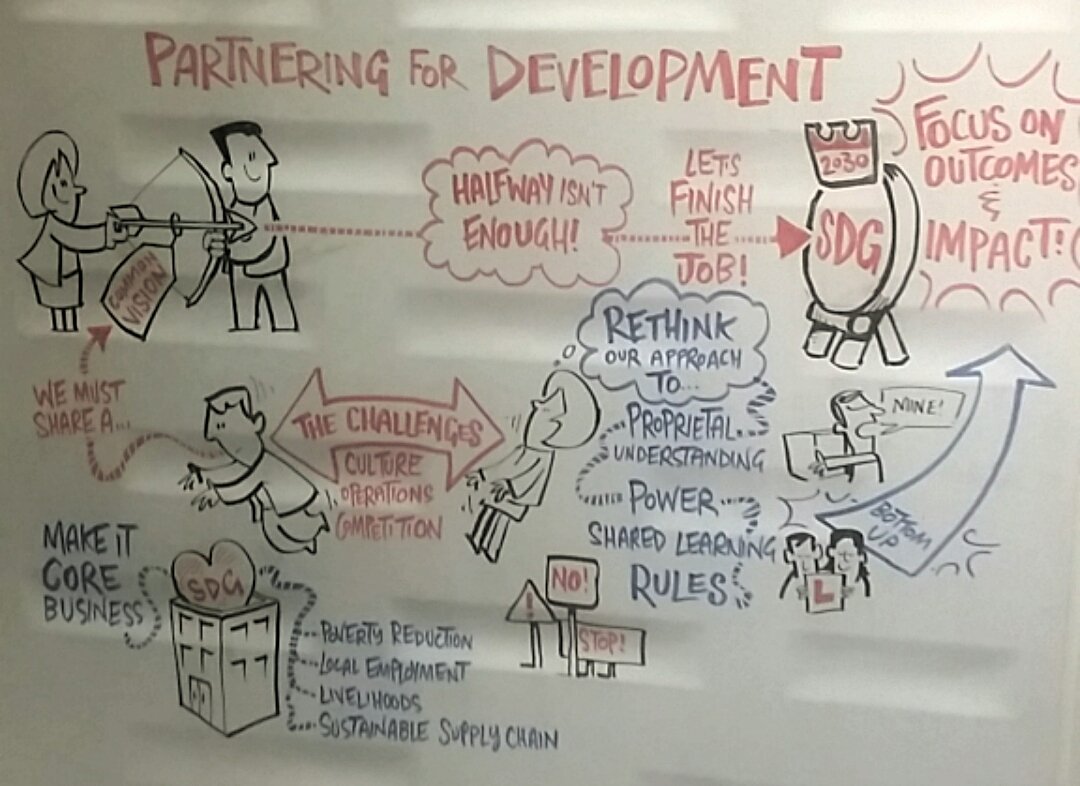 PARTNERING FOR DEVELOPMENT
FOCUS ON
OUTCOMES
&
IMPACT!
2030
SDG
LET'S
FINISH
THE
JOB!
HALFWAY ISN'T
ENOUGH!
COMMON
VISION
WE MUST
SHARE A...
THE CHALLENGES
CULTURE
OPERATIONS
COMPETITION
RETHINK
OUR APPROACH
TO...
PROPRIETAL
UNDERSTANDING
POWER
SHARED LEARNING
RULES
MINE!
BOTTOM
UP
L
NO!
!
STOP!
MAKE IT
CORE
BUSINESS
SDG
POVERTY REDUCTION
LOCAL EMPLOYMENT
LIVELIHOODS
SUSTAINABLE SUPPLY CHAIN